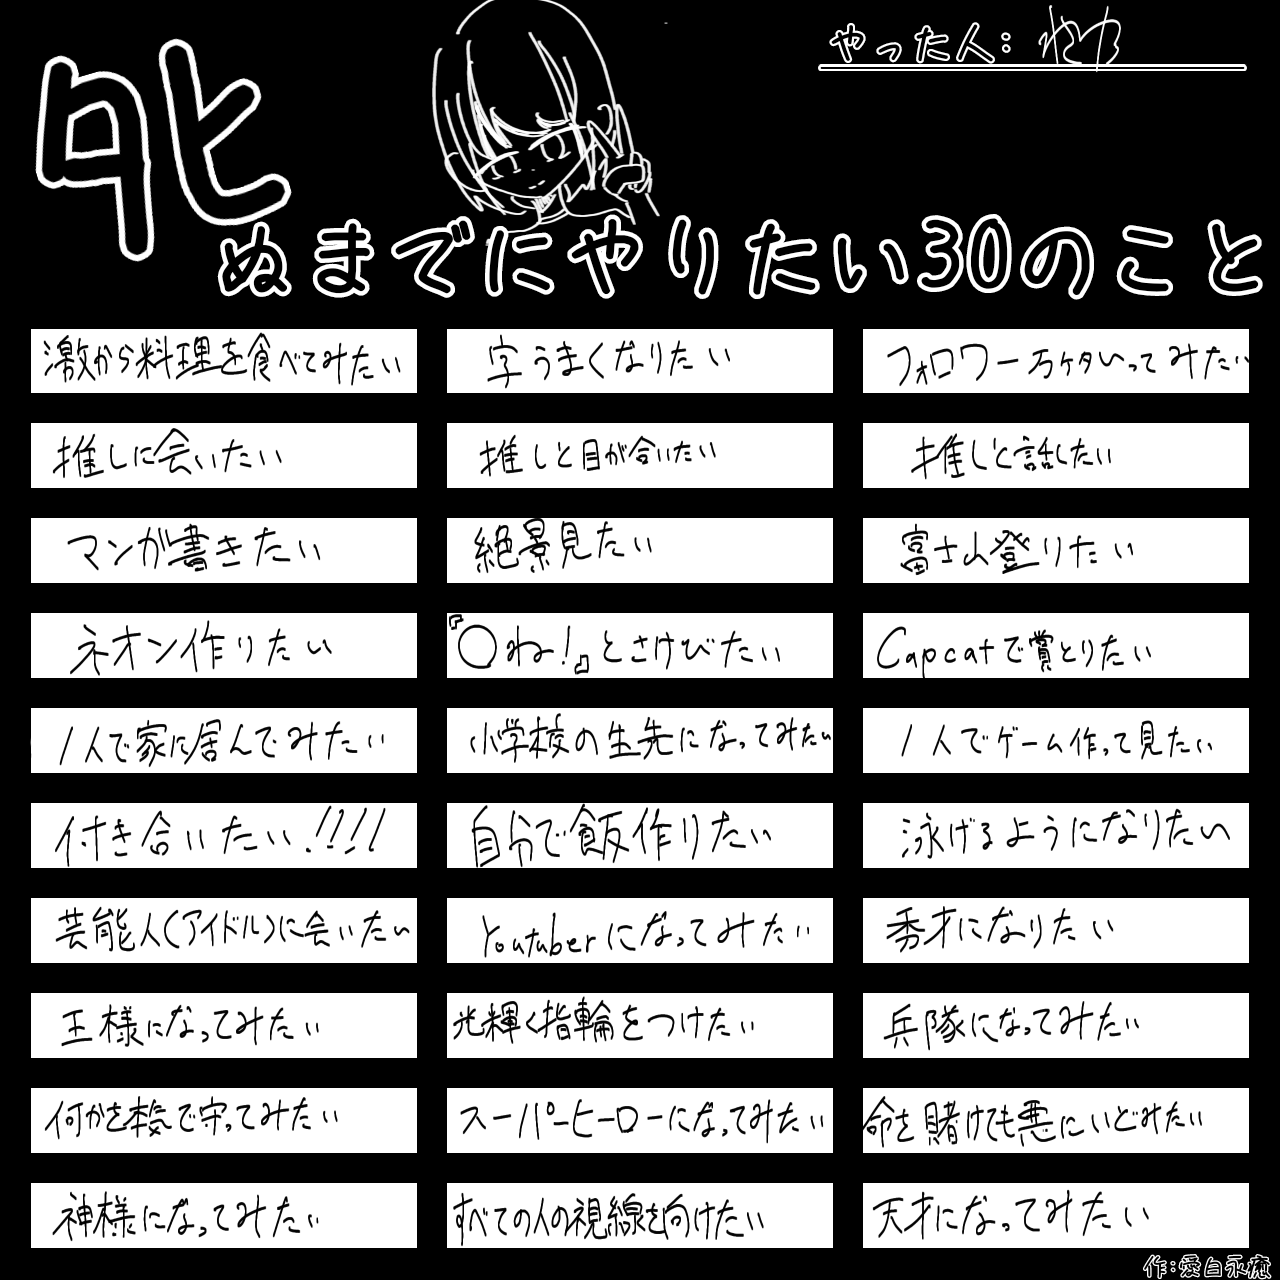 やった人:
タヒ
ぬまでにやりたい30のこと
激から料理を食べてみたい
字うまくなりたい
フォロワー万ケタいってみたい
推しに会いたい
推しと目が合いたい
推しと話したい
マンガ書きたい
絶景見たい
富士山登りたい
ネオン作りたい
『〇ね!』とさけびたい
Capcatで賞とりたい
1人で家に居んでみたい
小学校の生先になってみたい
1人でゲーム作って見たい
付き合いたい!!!!
自分で飯作りたい
泳げるようになりたい
芸能人(アイドル)に会いたい
Youtuberになってみたい
秀才になりたい
王様になってみたい
光輝く指輪をつけたい
兵隊になってみたい
何かを本気で守ってみたい
スーパーヒーローになってみたい
命を賭けても悪にいどみたい
神様になってみたい
すべての人の視線を向けたい
天才になってみたい
作:愛白永癒